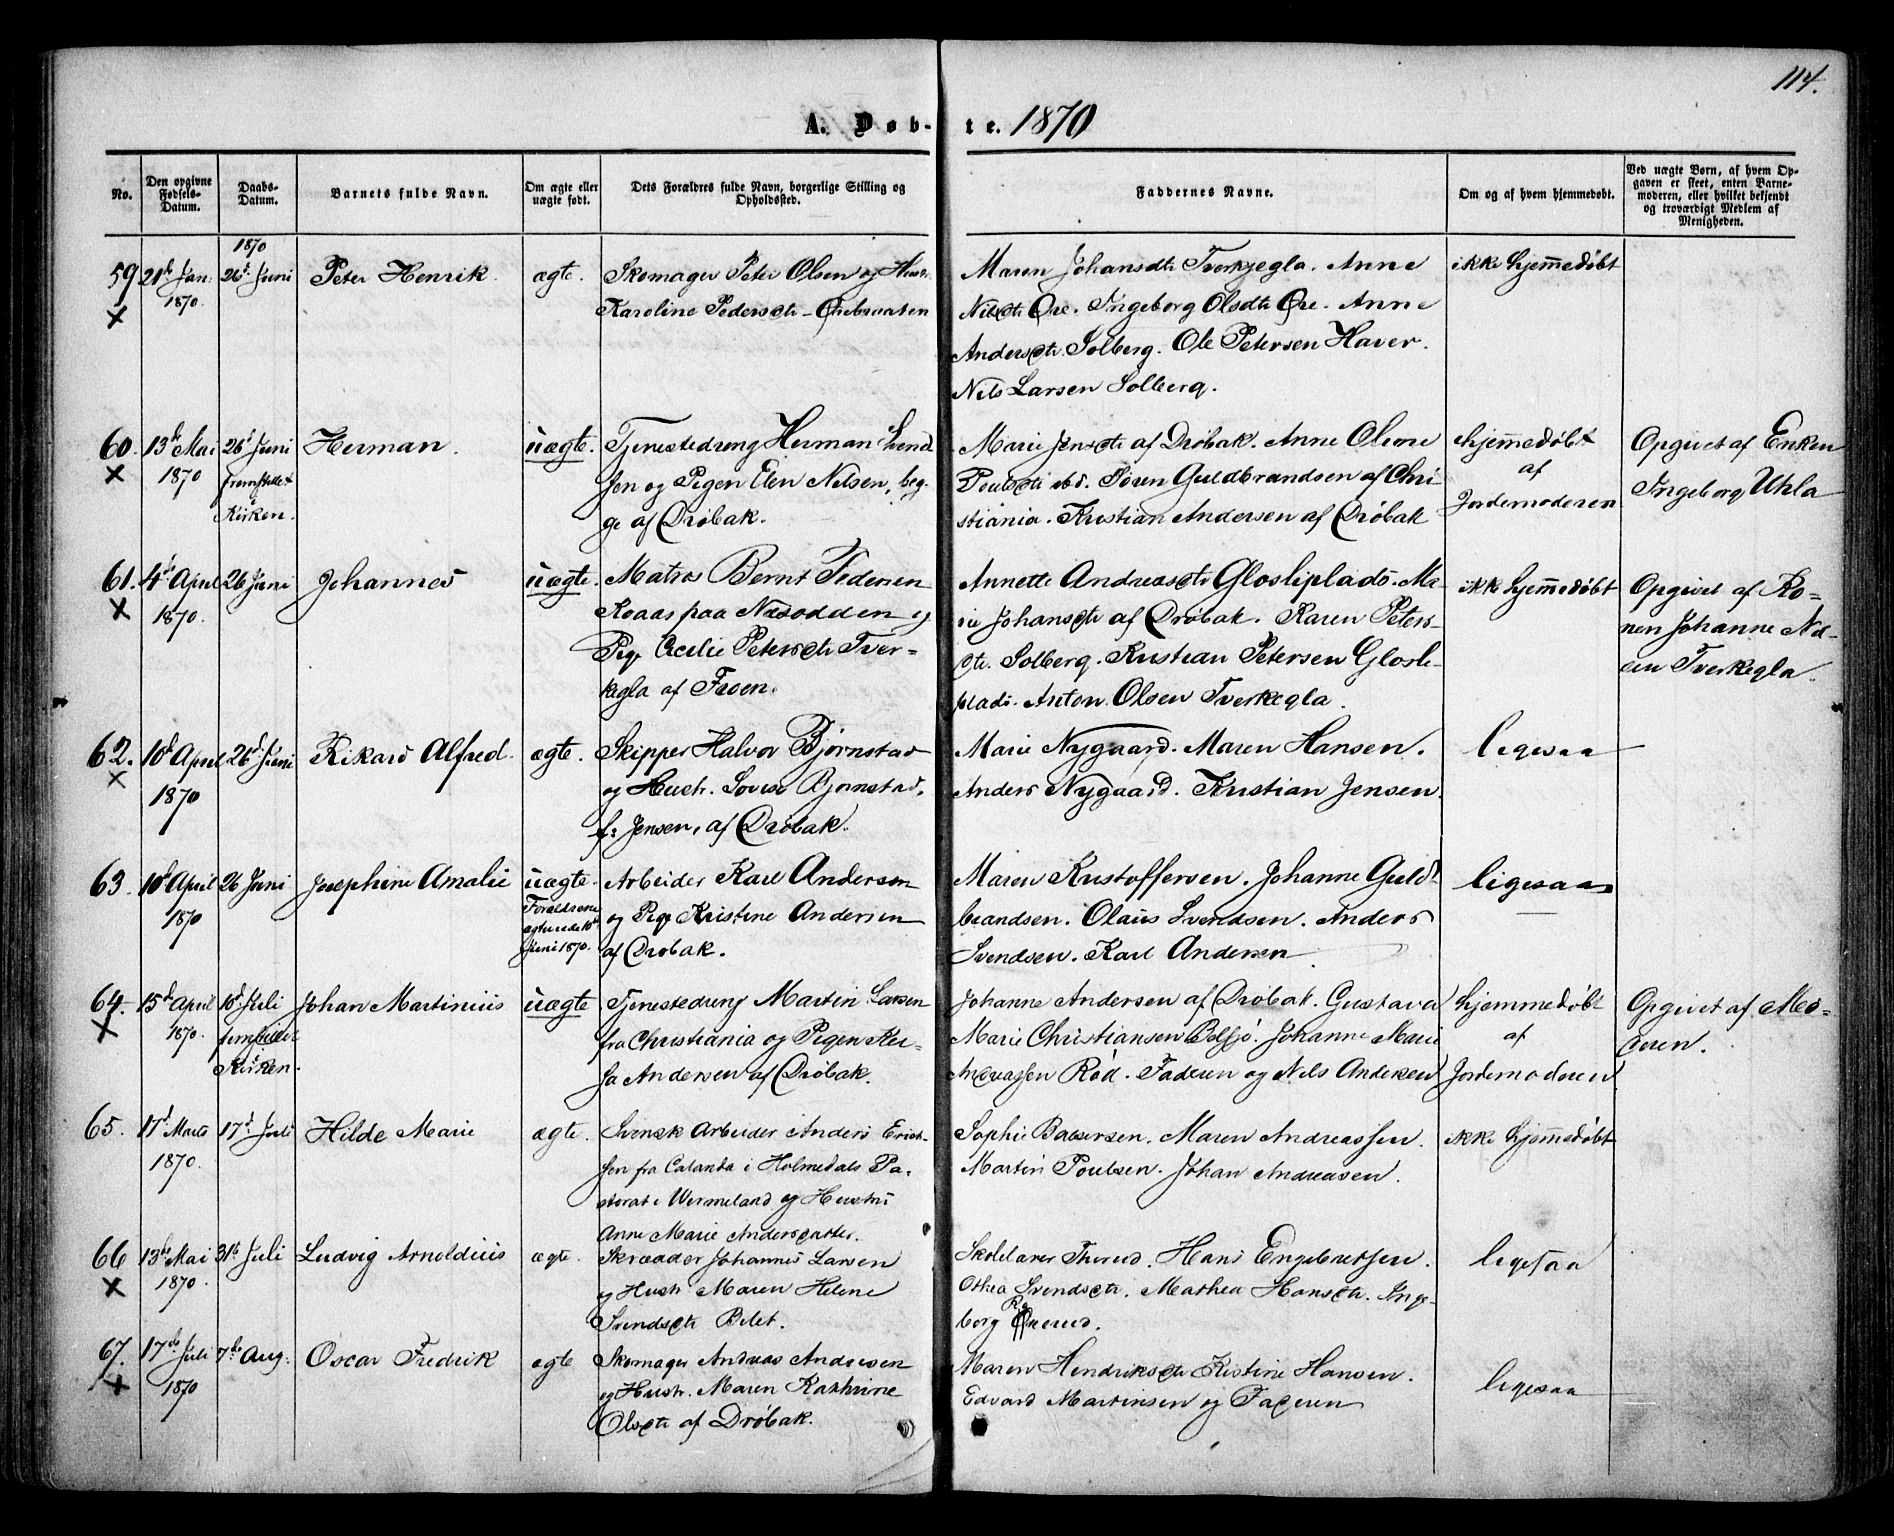 114.
A. Døb-te. 1870
No.
Den opgivne Fødsels-Datum.
Daabs-Datum.
Barnets fulde Navn.
Om ægte eller uægte født.
Dets Forældres fulde Navn, borgerlige Stilling og Opholdssted.
Faddernes Navne.
Om og af hvem hjemmedøbt.
Ved uægte Børn, af hvem Op-
gaven er skeet, enten Barne-
moderen, eller hvilket bekjendt
og troværdigt Medlem af
Menigheden.
1870
59 21de Jan. 26de Juni Peter Henrik. ægte. Skomager Peter Olsen og Hustr.
1870. Karoline Pedersdtr
Maren Johansdtr Tverkjegla. Anne
Nilsdtr Øre. Ingeborg Olsdtr Øre. Anne
Andersdtr. Solberg. Ole Petersen Haver.
Nils Larsen Solberg.
ikke hjemmedøbt
60. 13de Mai 26d Juni Herman. uægte. Tjenestedreng Herman Svend-
1870 fremstillet i sen og Pigen Elen Nilsen, beg-
Kirken. ge af Drøbak.
Marie Jensdtr af Drøbak. Anne Oleone
Poulsdtr ibd. Søren Guldbrandsen af Chri-
stiania. Kristian Andersen af Drøbak
hjemmedøbt
af
Jordemoderen
Opgivet af Enken
Ingeborg Uhla
61. 4de April 26 Juni Johannes uægte. Matros Bernt Pedersen
1870. Roaas paa Næsodden og
Pige Cecilie Petersdtr Tver-
kegla af Froen.
Annette Andreasdtr Glosliplads. Ma-
rie Johansdtr af Drøbak. Karen Peters-
dtr. Solberg. Kristian Petersen Glosli-
plads. Anton Olsen Tverkegla.
ikke hjemmedøbt
Opgivet af Ko-
nen Johanne Nil-
sen Tverkegla.
62. 10d April 26d Juni Rikard Alfred. ægte. Skipper Halvor Bjørnstad
1870 og Hustr. Lovise Bjørnstad,
f: Jensen, af Drøbak.
Marie Nygaard. Maren Hansen.
Anders Nygaard. Kristian Jensen.
ligesaa
63. 10d April 26 Juni Josephine Amalie uægte. Arbeider Karl Andersen
1870 Forældrene og Pige Kristine Andersen
ægteviede 10de af Drøbak.
Juni 1870.
Maren Kristoffersen. Johanne Guld-
brandsen. Olaus Svendsen. Anders
Svendsen. Karl Andersen
ligesaa
64. 15de April 10d Juli Johan Martinius uægte Tjenestedreng Martin Larsen
1870. fremstillet i fra Christiania og Pigen Ker-
Kirken. sa Andersen af Drøbak.
Johanne Andersen af Drøbak. Gustava
Marie Christiansen Bolsjø. Johanne Marie
Andreassen Rød. Faderen og Nils Andersen
hjemmedøbt
af
Jordemoderen
Opgivet af Mo-
deren.
65. 17d Marts 17d Juli Hilde Marie ægte. Svensk Arbeider Anders Erich-
1870. sen fra Calanda i Holmedals Pa-
storat i Wermeland og Hustru
Anne Marie Andersdatter.
Sophie Maren Andreassen.
Martin Poulsen. Johan Andreasen.
ikke hjemmedøbt
66 13de Mai 31te Juli Ludvig Arnoldius ægte. Skrædder Johannes Larsen
1870. og Hustr. Maren Helene
Svendsdtr Belet.
Skolelærer Therud. Hans Engebretsen.
Othea Svendsdtr. Mathea Hansdtr. Inge-
borg
ligesaa
67. 17de Juli 7de Aug. Oscar Fredrik ægte Skomager Andreas Andresen
1870 og Hustr. Maren Kathrine
Olsdtr af Drøbak.
Maren Hendriksdtr Kistine Hansen.
Edvard Martinsen og Faderen
ligesaa